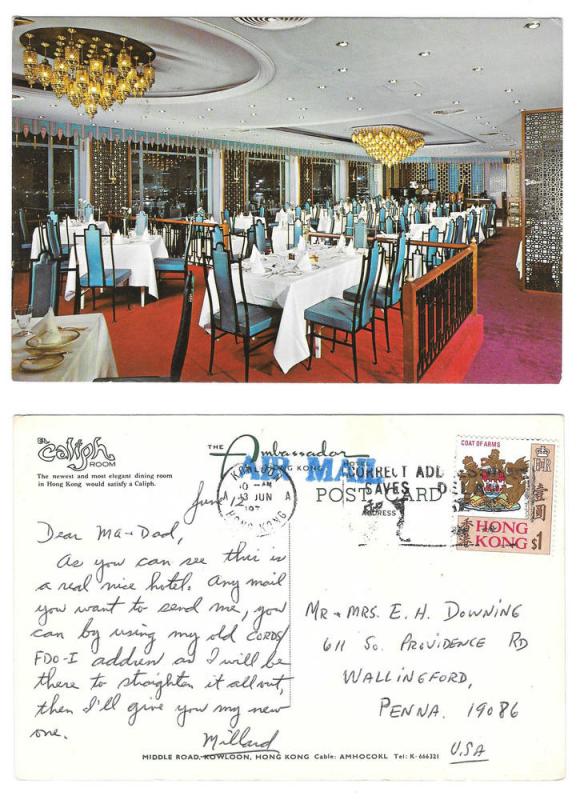 The
Caliph
ROOM
The newest and most elegant dining room
in Hong Kong would satisfy a Caliph.
THE Ambassador
HONG KONG
AIR MAIL
POST CARD
ADDRESS
KOWLOON
10 - AM
A 13 JUN A
197
HONG KONG
CORRECT ADD
SAVES DE
COAT OF ARMS
E R
壹圓
香港
HONG
KONG $1
June 12
Dear Ma + Dad,
As you can see this is
a real nice hotel. Any mail
you want to send me, you
can by using my old CORDS/
FDO-I address as I will be
there to straighten it all out,
then I'll give you my new
one.
Millard
MR + MRS. E. H. DOWNING
611 SO. PROVIDENCE RD
WALLINGFORD,
PENNA. 19086
USA
MIDDLE ROAD, KOWLOON, HONG KONG Cable: AMHOCOKL Tel: K-666321